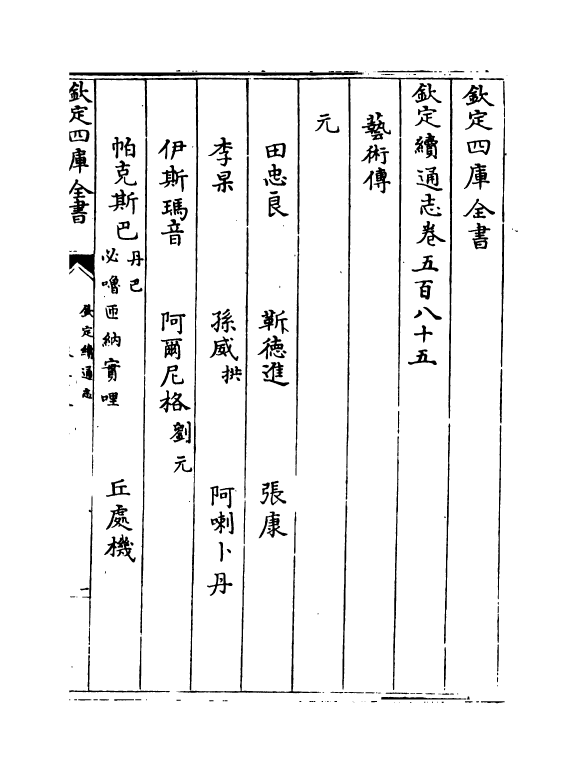 欽定四庫全書
欽定續通志卷五百八十五
藝術傳
元
田忠良 靳德進 張康
李杲 孫威拱 阿喇卜丹
伊斯瑪音 阿爾尼格劉元
帕克斯巴丹巴必嚕匝納實哩 丘處機
欽定四庫全書 欽定續通志 一